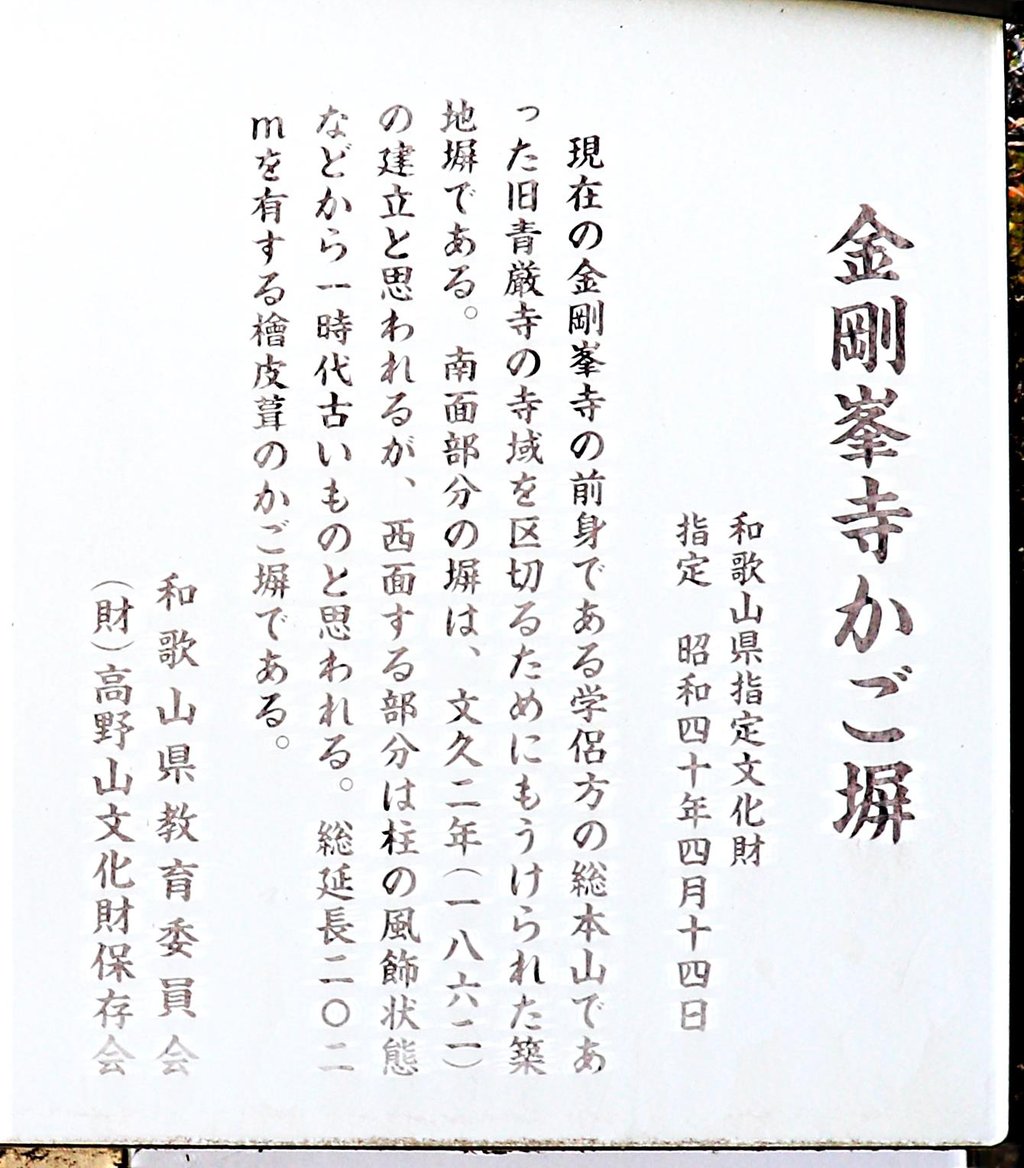 金剛峯寺かご塀
和歌山県指定文化財
指定　昭和四十年四月十四日
現在の金剛峯寺の前身である学侶方の総本山であ
った旧青厳寺の寺域を区切るためにもうけられた築
地塀である。南面部分の塀は、文久二年(一八六二)
の建立と思われるが、西面する部分は柱の風飾状態
などから一時代古いものと思われる。総延長二〇二
mを有する檜皮葺のかご塀である。
和歌山県教育委員会
(財)高野山文化財保存会